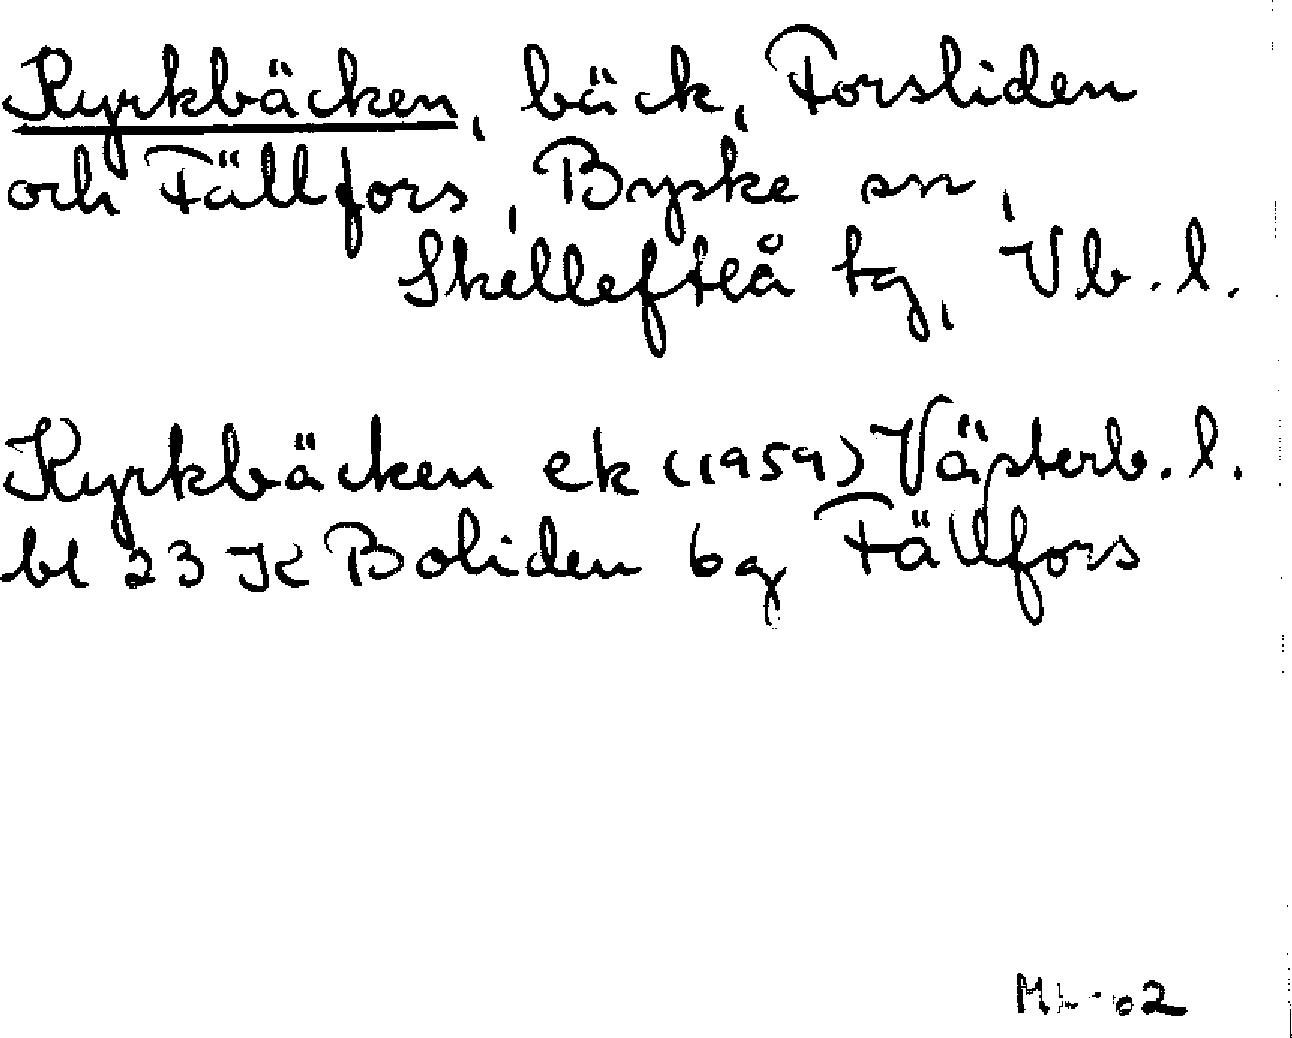 Kyrkbäcken, bäck, Forsliden
och Fällfors, Byske sn,
Skellefteå tg, Vb. l.
Kyrkbäcken ek (1959) Västerb. l.
bl 23 K Boliden bg Fällfors